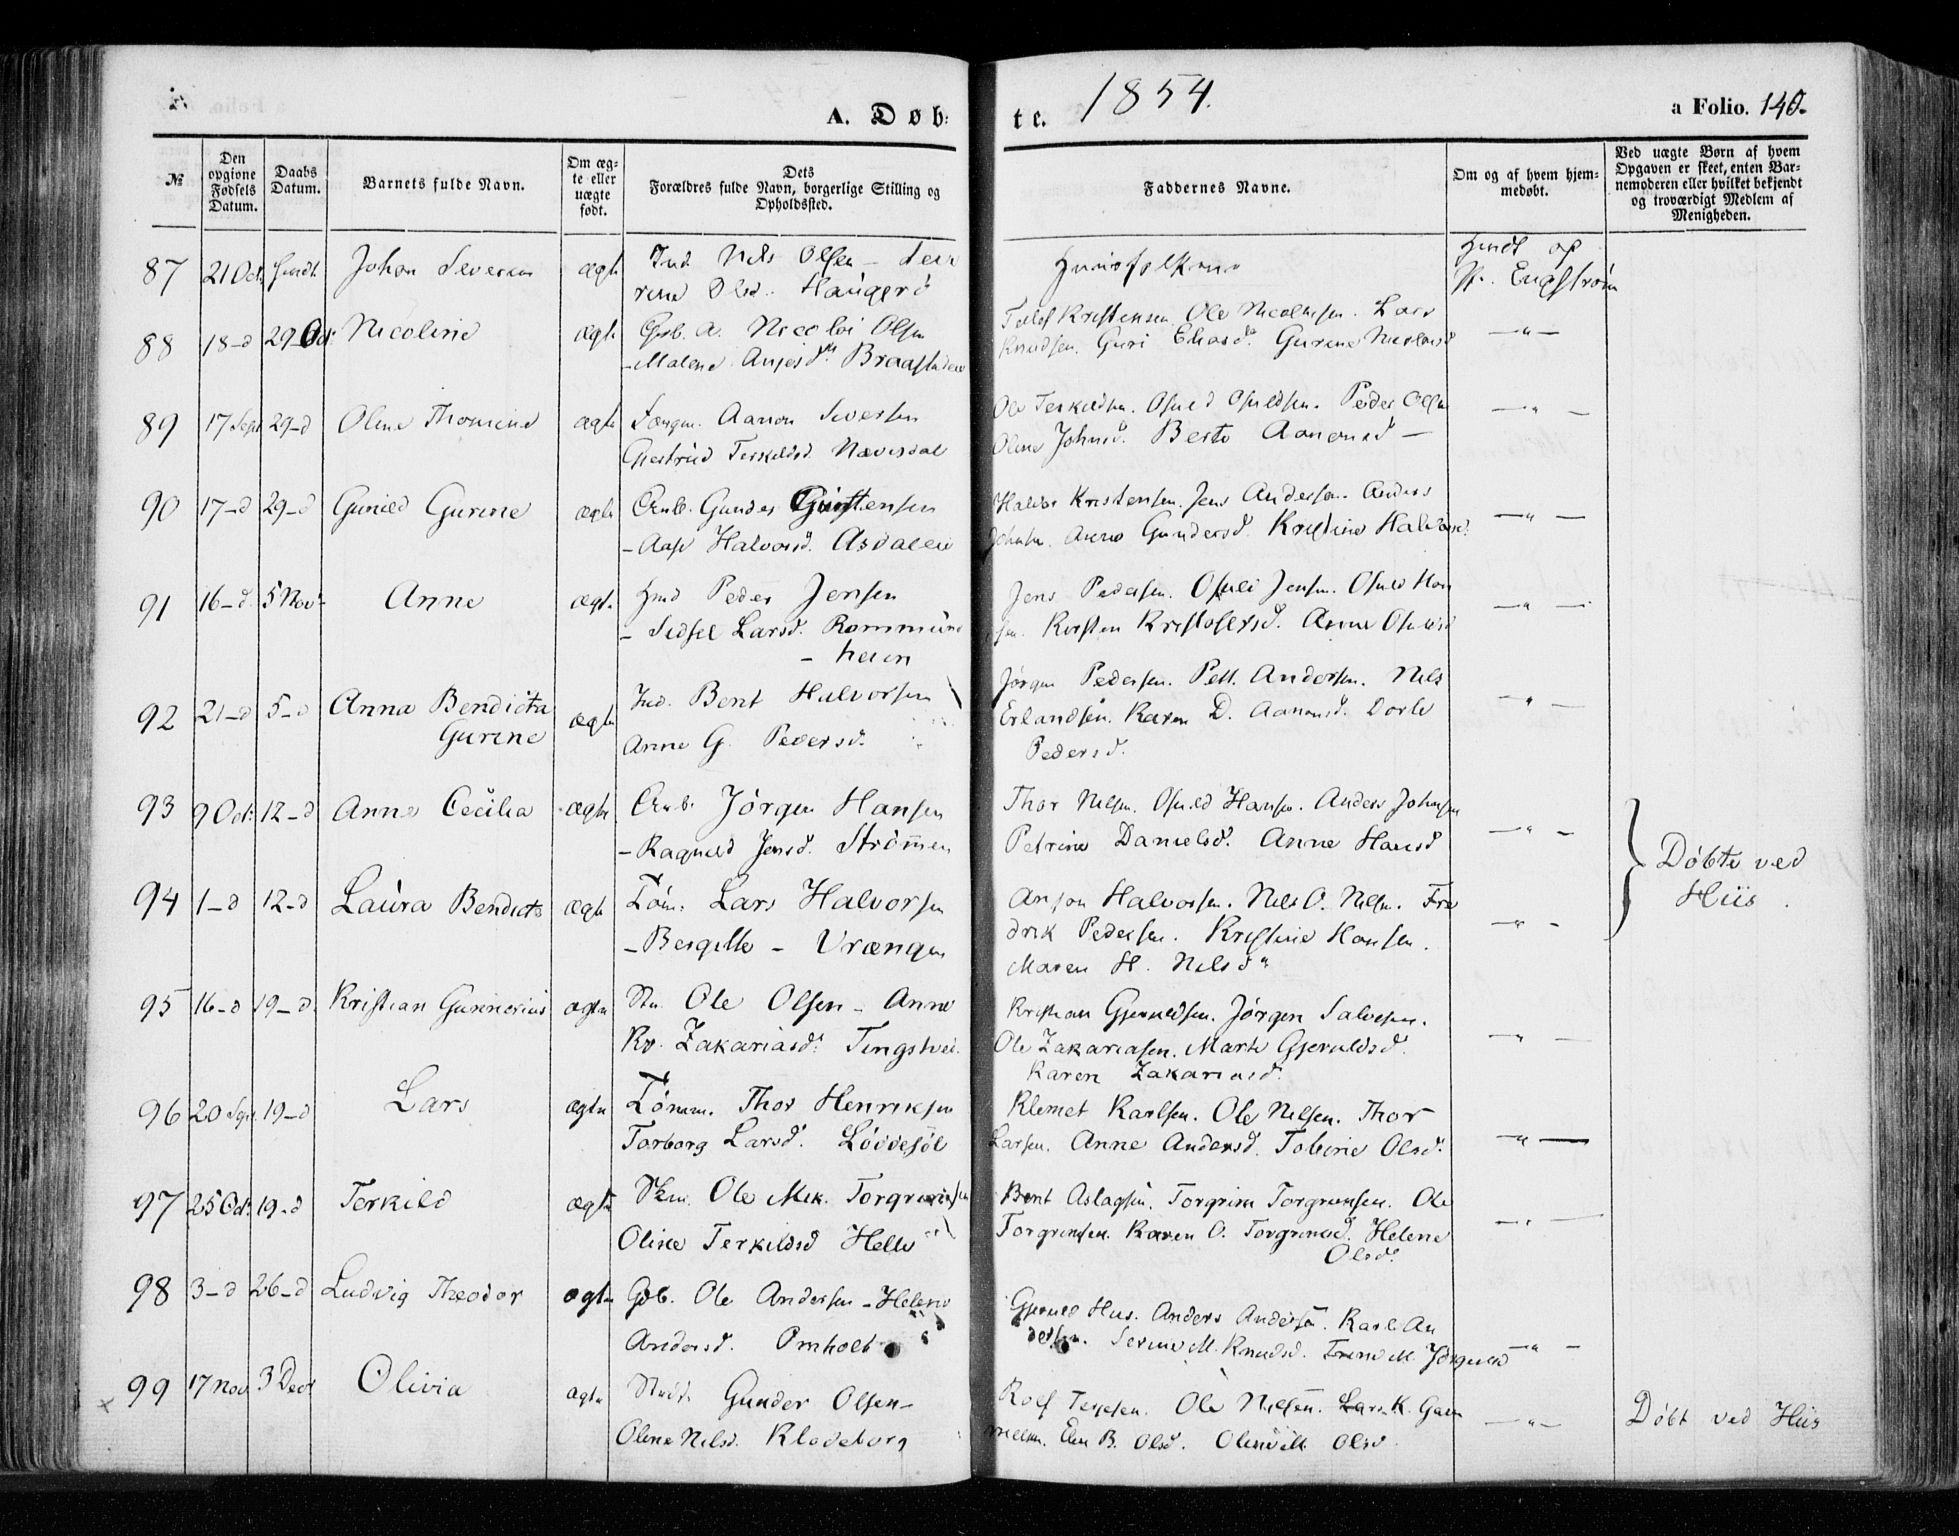 A. Døb-
te.
1854.
a Folio. 140.
№
Den opgivne Fødsels Datum.
Daabs Datum.
Barnets fulde Navn.
Om ægte eller uægte født.
Dets Forældres fulde Navn, borgerlige Stilling og Opholdssted.
Faddernes Navne.
Om og af hvem hjemmedøbt.
Ved uægte Børn af hvem Opgaven er skeet, enten Barnemoderen eller hvilket bekjendt og troværdigt Medlem af Menigheden.
87 21 Oct. Johan ægte Nils Olsen
Olsd. Haugerø
88 18-d 29-Oct. Nicoline ægte Gsb. A. Nicolai Olsen Kristensen. Ole Nicolaisen. Lars
Malene Braastdew Knudsen. Guri Gurine
89 17 Sept 29-d Oline Thomine ægte Aanon Sivertsen Ole Terkildsen. Osuld Osuldsen. Peder Olsen
Gjertrud Terkildsd. Nævesdal Oline Johnsd. Berte Aanonsd -
90 17-d 29-d Gunild Gurine ægte Arub. Gunder Kristensen. Jens Andersen. Anders
- Aase Halvorsd. Asdalen Johnsen. Anne Gundersd. Kristine Halvorsd.
91 16-d. 5 Nov. Anne ægte Peder Jensen Jens Pedersen. Osuld Jensen. Osuld Han
- Sidsel Larsd. Rommund sen. Kirsten Kristofersd. Anne Osuldsd
- heien
92 21-d 5-d Anna Bendicta ægte Ind. Bent Halvorsen Jørgen Pedersen. Pett. Andersen. Nils
Gurine Anne G. Pedersd. Erlandsen. Karen D. Aanonsd. Dorte
Pedersd.
93 9 Oct. 12-d Anne Cecilia ægte Arub. Jørgen Hansen Thor Nilsen. Osuld Hansen. Anders Johnsen
- Ragnild Jensd. Strömmen Petrine Danielsd. Anne Hansd
Døbte ved
Hiis
94 1-d 12-d Laura Bendicte ægte Töm. Lars Halvorsen Halvorsen. Nils O. Nilsen. Fre
- Bergitte - Vrængen drik Pedersen. Kristine Hansen.
Maren H. Nilsd
95 16-d 19-d. Kristian Gunnerius ægte Ole Olsen - Anne Kristian Gjeruldsen. Jørgen Salvesen.
Kr. Zakariasd. Tingstvei. Ole Zakariasen. Marte Gjeruldsd.
Karen Zakariasd.
96 20 Sept. 19-d Lars ægte Tömm. Thor Henriksen Klemet Karlsen. Ole Nilsen. Thor
Torborg Larsd. Löddesöl Larsen. Anne Andersd. Tobine Olsd.
97 25 Oct. 19-d Terkild ægte Ole Mik. Torgrimsen Bent Aslagsen. Torgrim Torgrimsen. Ole
Oline Terkildsd Helle Torgrimsen. Karen O. Torgrimsd. Helene
Olsd.
98 3-d 26-d Ludvig Theodor ægte Gdb. Ole Andersen - Helene Gjeruld Hus. Anders Andersen. Karl An
Andersd. Omholt dersen. Serine M. Knudsd. M.
99 17 Nov 3 Decr Olivia ægte Gunder Olsen - Rolf Terjesen. Ole Nilsen. Lars K. Gun
Oline Nilsd. Klodeborg B. Olsd. Oline M. Olsd
Døbt ved Hiis